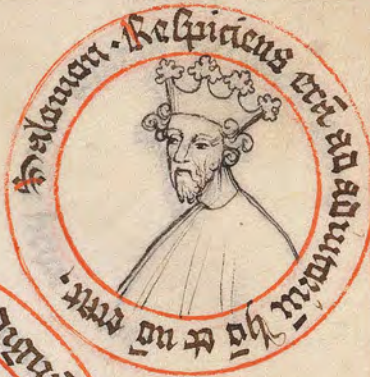 Salomon . Respiciens erā ad adiutoriū hō ⁊ nō erat .